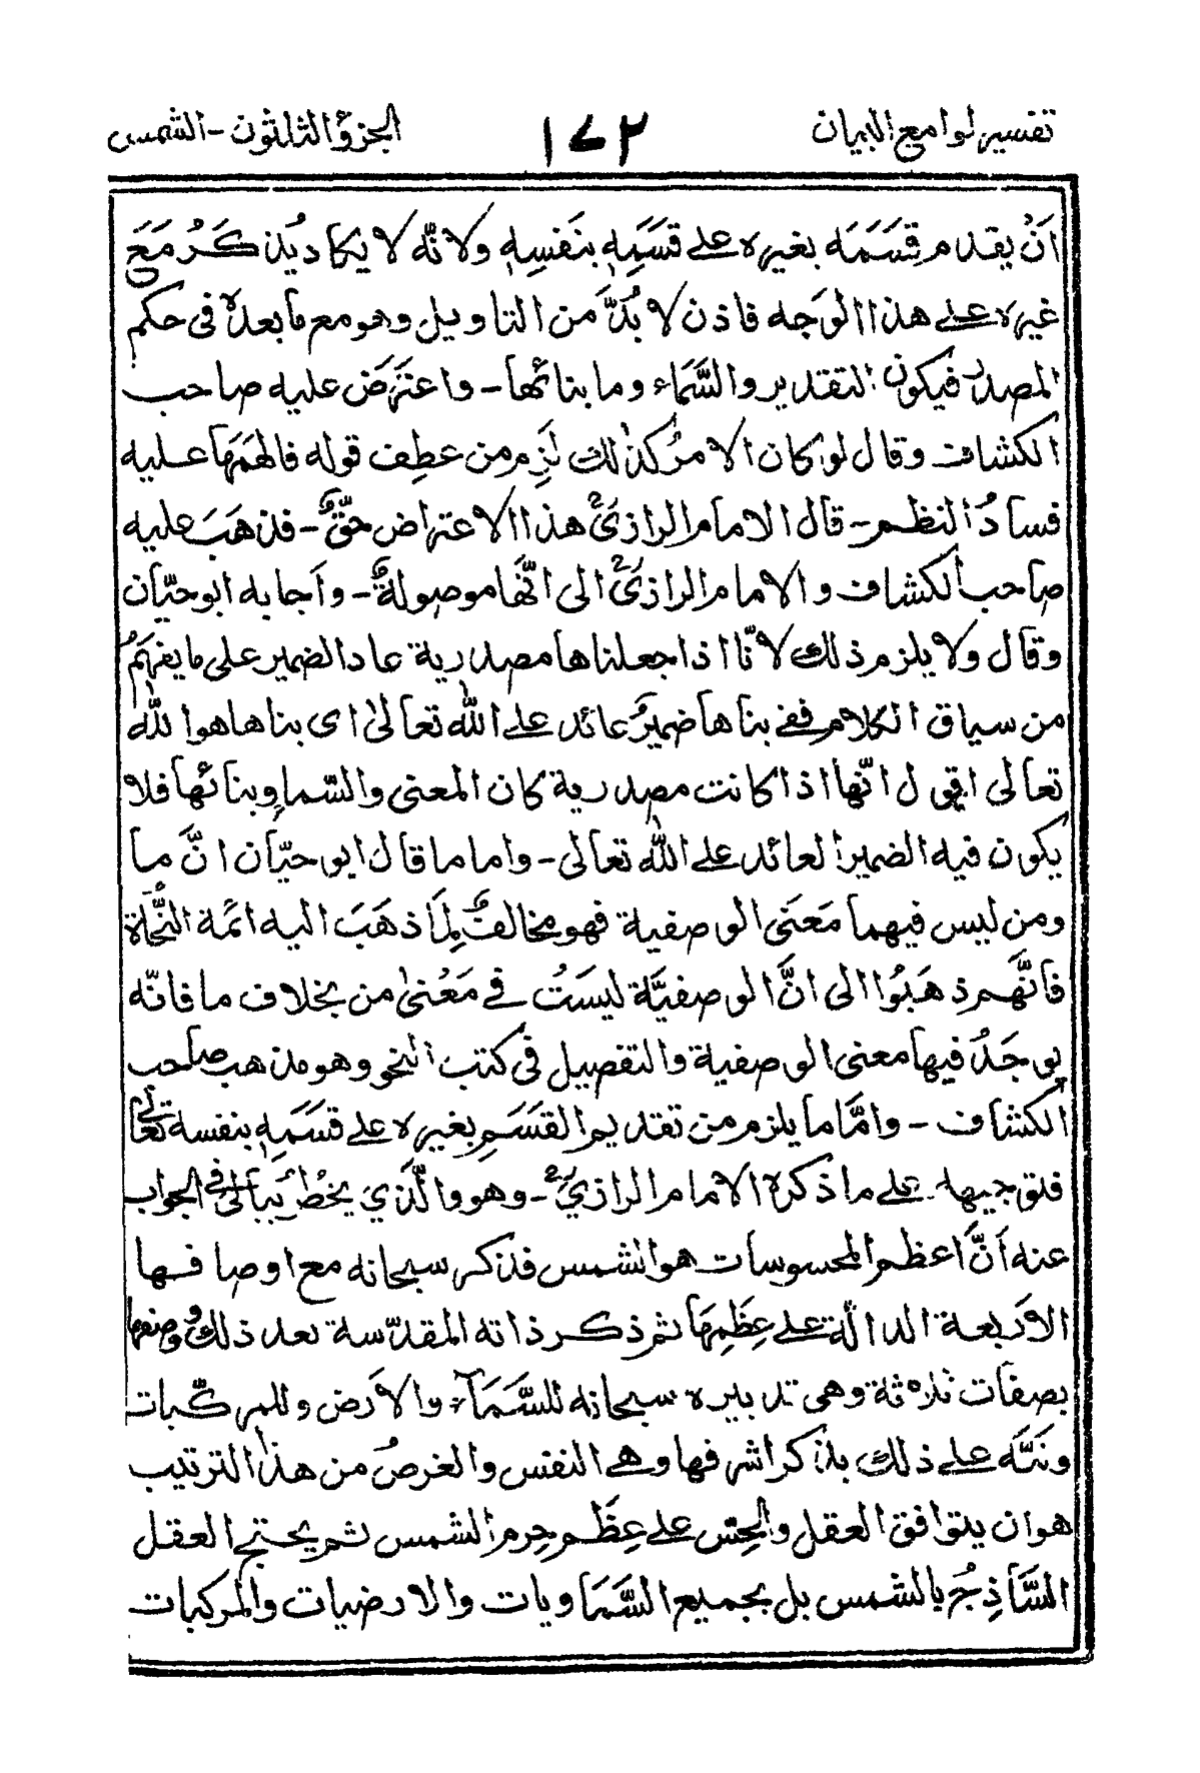 تفسير لوامع البيان ١٧٢ الجزؤ الثلثون - الشمس
اَنْ يقدم قِسَمَه بغيره على قسَمِهٖ بنَفسِهٖ ولانّه لا يكاد يُذكَرُ مَعَ
غيره على هذا الوَجه فاذن لا بُدَّ من التاويل وهو مع ما بعدهٗ فى حكم
المصدر فيكون التقدير والسَّمَاء وما بنائها - واعترَضَ عليه صاحب
الكشاف وقال لو كان الامرُ كذٰلك لَزِم من عطِف قوله فالهَمَهَا عليه
فسادُ النظم - قال الامام الرازىؒ هذا الاعتراض حقٌّ - فذهَبَ عليه
صاحب الكشاف والامام الرازىؒ الى انّها موصولةٌ - واَجابه ابو حيّان
وقال ولا يلزم ذلك لانّا اذا جعلناها مصدرية عاد الضمير على ما يفهَمُ
من سياق الكلام ففى بناها ضميرٌ عائد على الله تعالىٰ اى بناها هو الله
تعالى اقول انّها اذا كانت مصدرية كان المعنى والسّماءِ وبنائها فلا
يكون فيه الضمير العائد على الله تعالى - واما ما قال ابو حيّان انَّ ما
ومن ليس فيهما مَعنَى الوصفية فهو مخالفٌ لِمَا ذهَبَ اليه ائمّة النُّحاة
فانَّهم ذهَبُوا الى انَّ الوصفيَّة ليسَتْ فى مَعْنىٰ من بخلاف ما فانّه
يوجَدُ فيها معنى الوصفية والتفصيل فى كتب النحو وهو مذهب صاحب
الكشاف - وامَّا ما يلزم من تقديم القَسَمِ بغيره على قسَمَهٖ بنفسهٖ تعالىٰ
فتوجيهه على ما ذكره الامام الرازىؒ - وهو والَّذي يخطُر ببالى فى الجواب
عنه اَنَّ اعظم المحسوسات هو الشمس فذكر سبحانه مع اوصافها
الاَربعة الدالّة على عِظَمِهَا ثم ذكر ذاته المقدّسة بعد ذلك ووصفها
بصفات ثلاثة وهى تدبيره سبحانه للسَّمَآء والاَرض وللمركّبات
ونَبَّه على ذلك بذكر اشرفها وهى النفس والغرضُ من هذا الترتيب
هو ان يتوافق العقل والحِسّ على عِظَم جِرم الشمس ثم يحتج العقل
السَّاذِجُ بالشمس بل بجميع السَّمَاويات والارضيات والمركبات